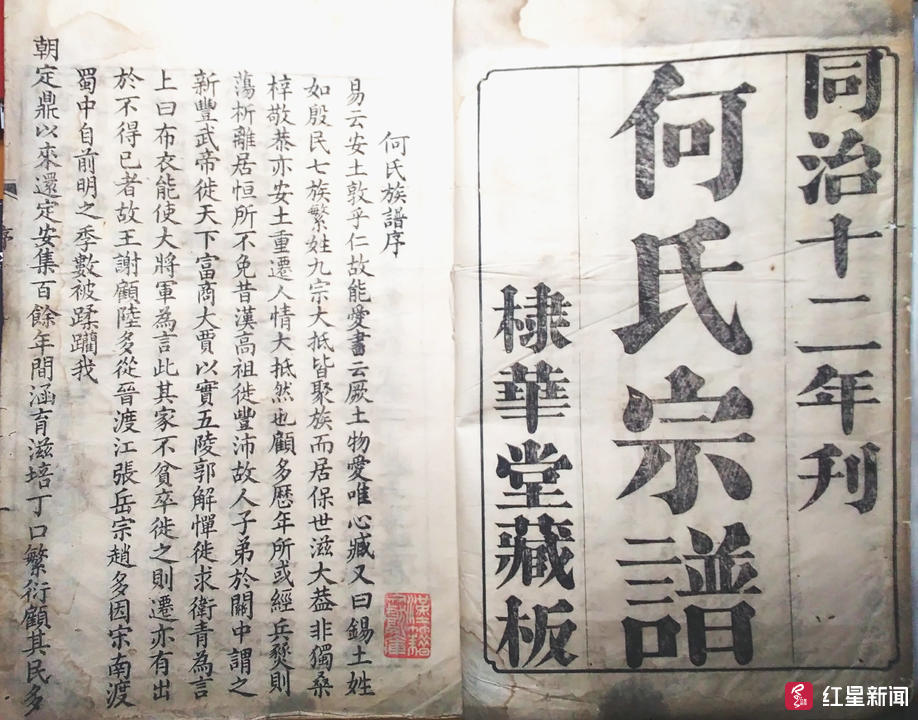 同治十二年刊
何氏宗譜
棣華堂藏板
何氏族譜序
易云安土敦乎仁故能愛書云厥土物愛唯心臧又曰錫土姓
如殷民七族繁姓九宗大抵皆聚族而居保世滋大葢非獨桑
梓敬恭亦安土重遷人情大抵然也顧多歷年所或經兵燹則
蕩析離居恒所不免昔漢高祖徙豐沛故人子弟於關中謂之
新豐武帝徙天下富商大賈以實五陵郭解憚徙求衛青為言
上曰布衣能使大將軍為言此其家不貧卒徙之則遷亦有出
於不得已者故王謝顧陸多從晉渡江張岳宗趙多因宋南渡
蜀中自前明之季數被蹂躪我
朝定鼎以來還定安集百餘年間涵育滋培丁口繁衍顧其民多
序
红星新闻